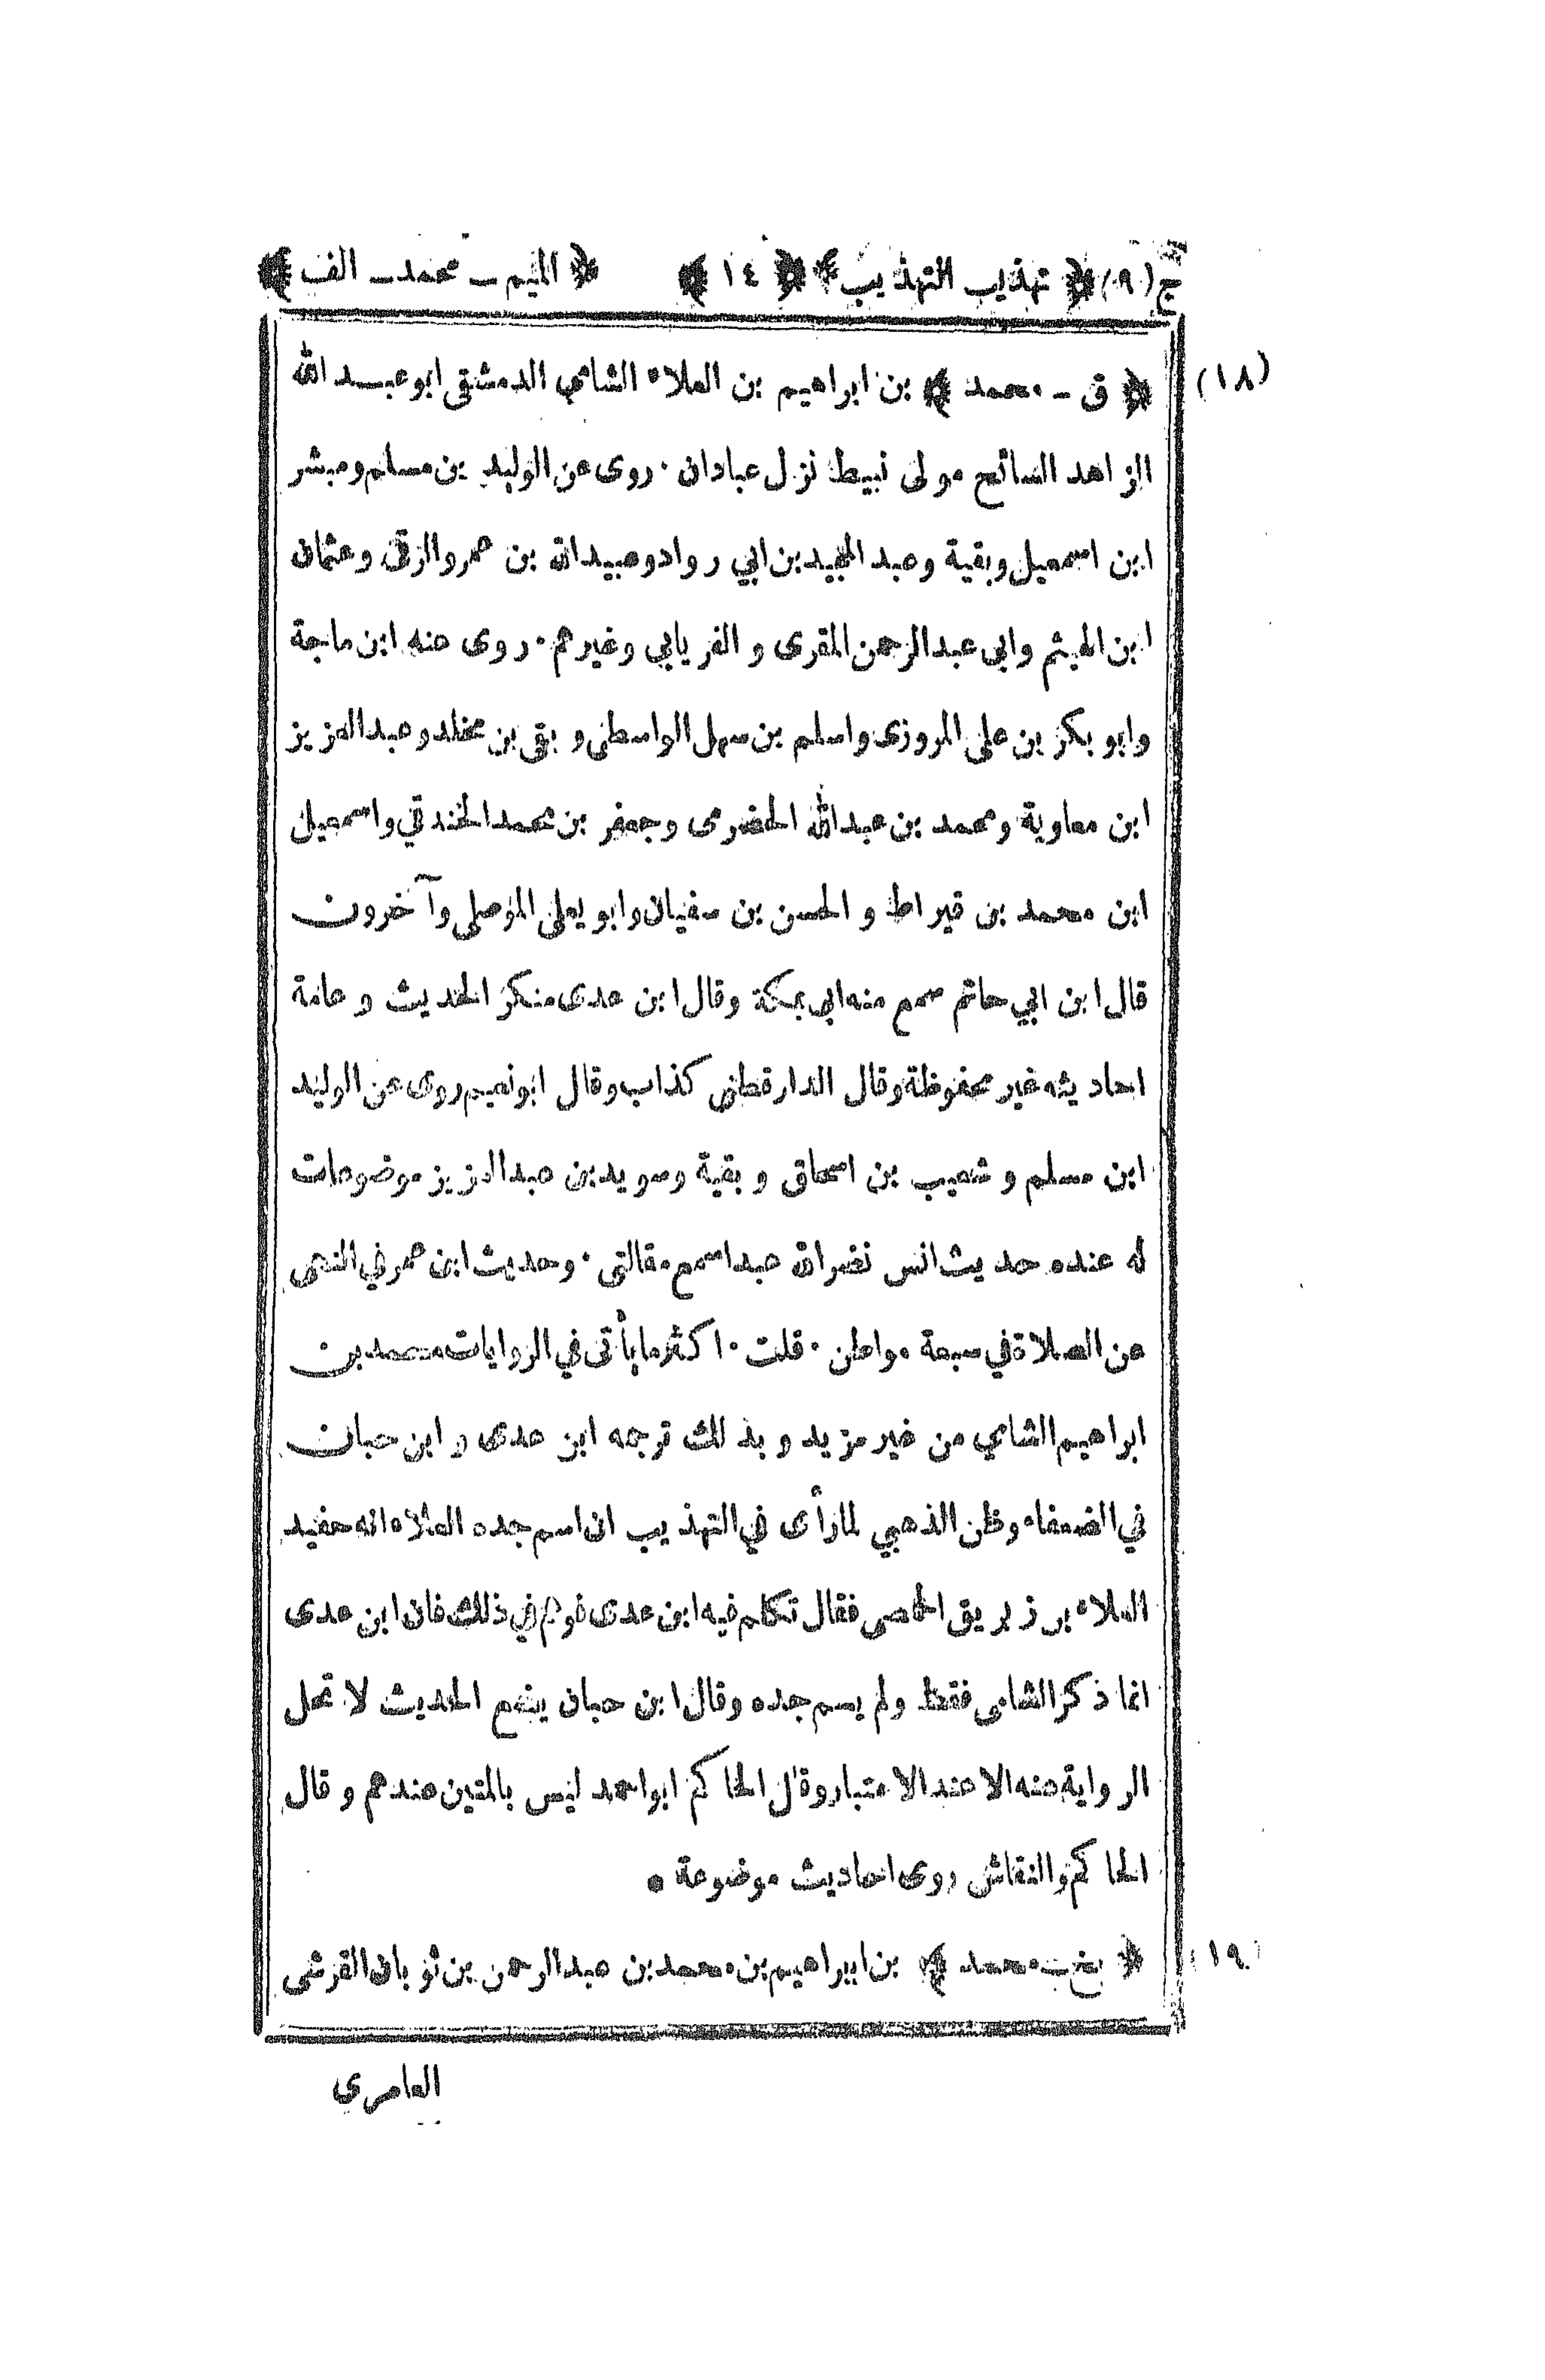 ج(٩) ﴿ تهذيب التهذيب ﴾ ﴿ ١٤ ﴾ ﴿ الميم ـ محمد ـ الف ﴾
(١٨) ﴿ ق ـ محمد ﴾ بن ابراهيم بن العلاء الشامي الدمشقى ابوعبد الله
الزاهد السائح مولى نبيط نزل عبادان ٠ روى عن الوليد بن مسلم ومبشر
ابن اسمعيل وبقية وعبد المجيد بن ابي رواد وعبيدالله بن عمرو الرقى وعثمان
ابن الهيثم وابى عبدالرحمن المقرى و الفريابي وغيرهم ٠ روى عنه ابن ماجة
وابو بكر بن على المروزى واسلم بن سهل الواسطى و بقى بن مخلد وعبدالعزيز
ابن معاوية ومحمد بن عبدالله الحضرمى وجعفر بن محمد الخندقي واسمعيل
ابن محمد بن قيراط و الحسن بن سفيان وابو يعلى الموصلى وآخرون
قال ابن ابي حاتم سمع منه ابى بمكة وقال ابن عدى منكر الحديث و عامة
احاديثه غير محفوظة وقال الدارقطنى كذاب وقال ابونعيم روى عن الوليد
ابن مسلم و شعيب بن اسحاق و بقية وسويد بن عبدالعزيز موضوعات
له عنده حديث انس نضر الله عبدا سمع مقالتى ٠ وحديث ابن عمر في النهى
عن الصلاة في سبعة مواطن ٠ قلت ٠ اكثر ما يأتى في الروايات محمد بن
ابراهيم الشامي من غير مزيد و بذلك ترجمه ابن عدى و ابن حبان
في الضعفاء وظن الذهبي لما رأى في التهذيب ان اسم جده العلاء انه حفيد
العلاء بن زبريق الحمصى فقال تكلم فيه ابن عدى فوهم في ذلك فان ابن عدى
انما ذكر الشامى فقط ولم يسم جده وقال ابن حبان يضع الحديث لا تحل
الرواية عنه الا عند الاعتبار وقال الحاكم ابواحمد ليس بالمتين عندهم و قال
الحاكم والنقاش روى احاديث موضوعة ●
(١٩) ﴿ بخ ـ محمد ﴾ بن ابراهيم بن محمد بن عبدالرحمن بن ثوبان القرشى
العامرى